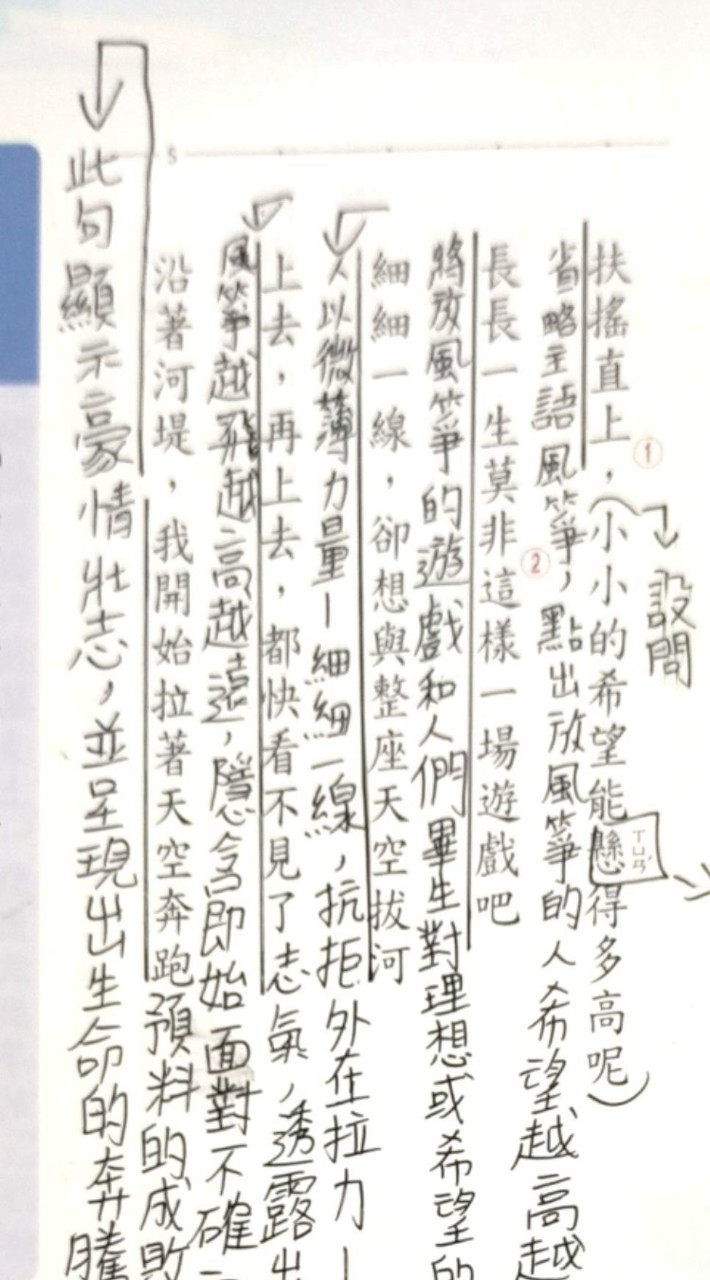 設問
①
扶搖直上,(小小的希望能懸得多高呢)
ㄒㄩㄢˊ
省略主語風箏,點出放風箏的人希望越高越
②
長長一生莫非這樣一場遊戲吧
將放風箏的遊戲和人們畢生對理想或希望的
細細一線,卻想與整座天空拔河
人以微薄力量—細細一線,抗拒外在拉力—
上去,再上去,都快看不見了
志氣,透露出
風箏越飛越高越遠,隱含即始面對不確
沿著河堤,我開始拉著天空奔跑
預料的成敗
5
此句顯示豪情壯志,並呈現出生命的奔騰